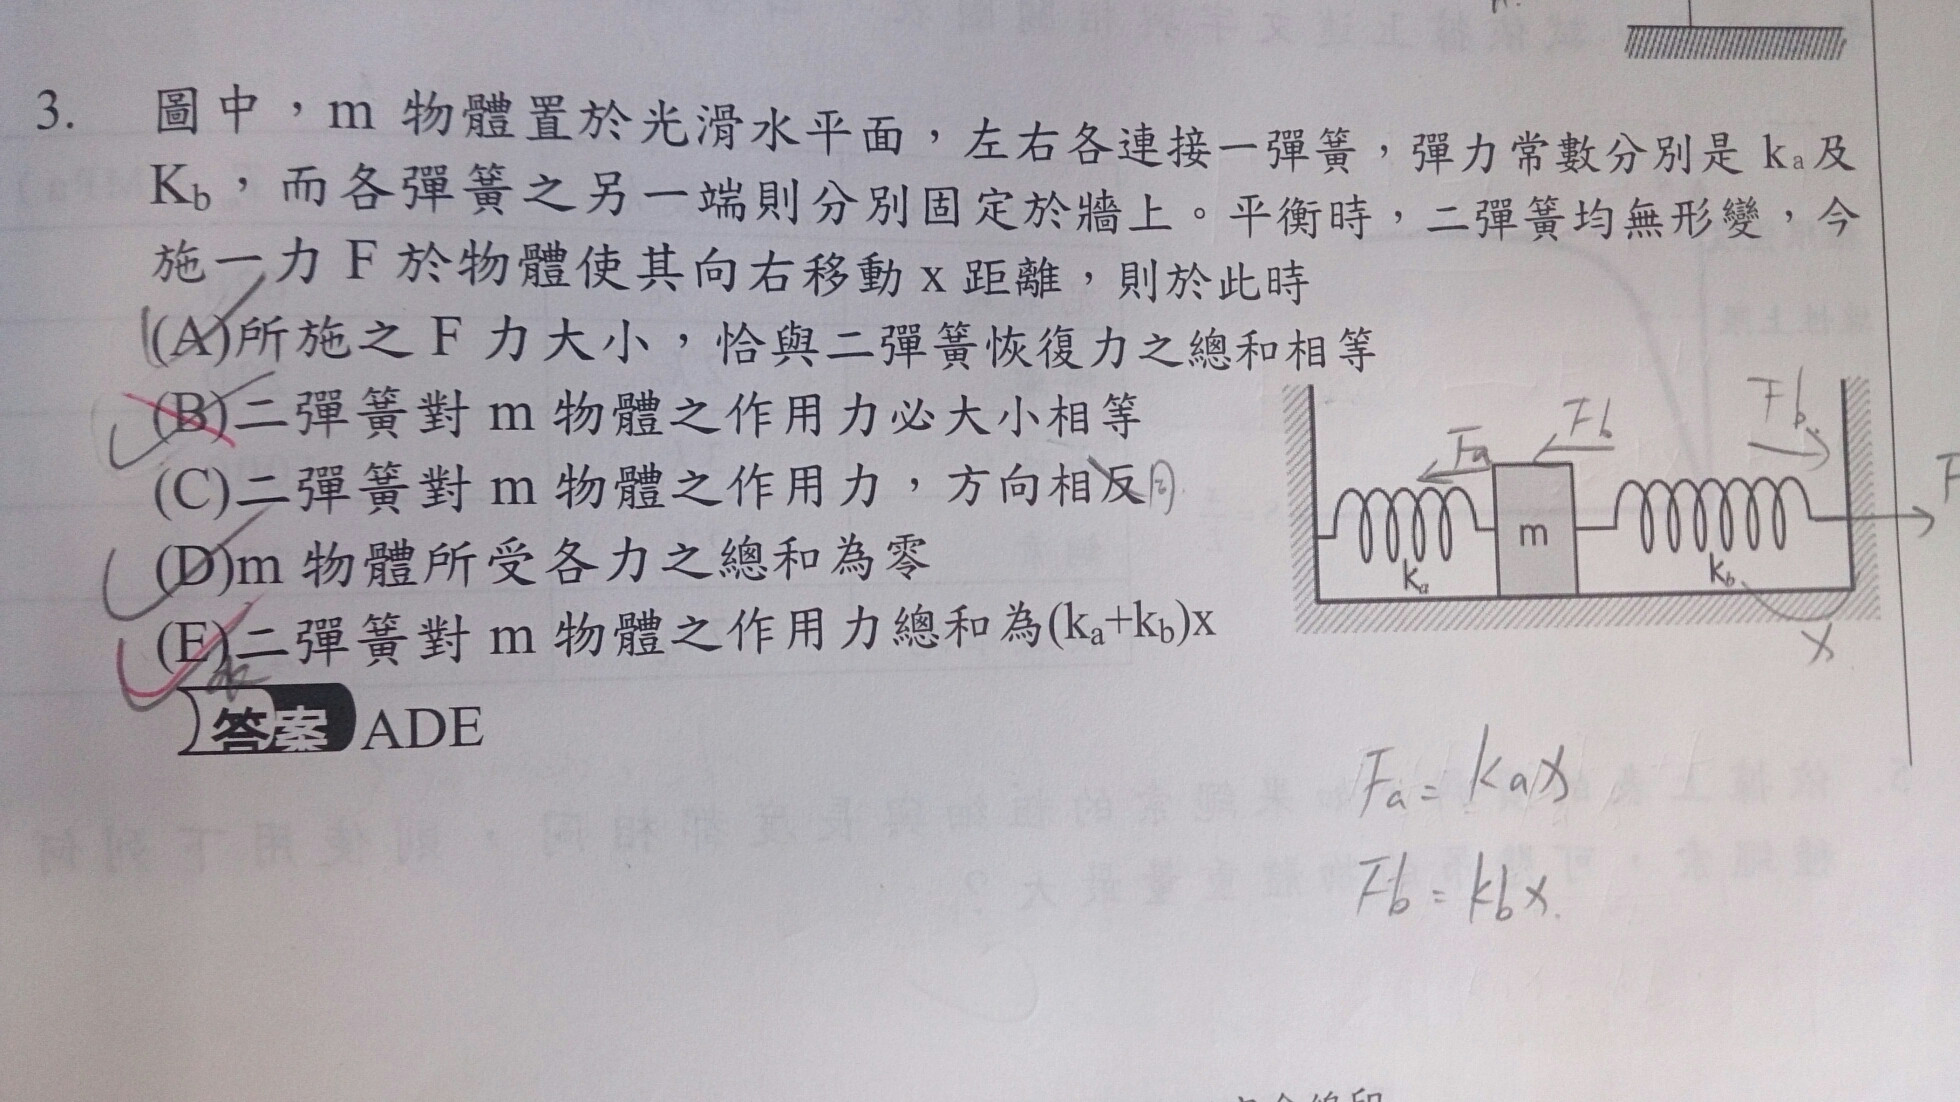 3. 圖中，m 物體置於光滑水平面，左右各連接一彈簧，彈力常數分別是 ka及
Kb，而各彈簧之另一端則分別固定於牆上。平衡時，二彈簧均無形變，今
施一力 F 於物體使其向右移動 x 距離，則於此時
(A)所施之 F 力大小，恰與二彈簧恢復力之總和相等
(B)二彈簧對 m 物體之作用力必大小相等
(C)二彈簧對 m 物體之作用力，方向相反同
(D)m 物體所受各力之總和為零
(E)二彈簧對 m 物體之作用力總和為(ka+kb)x
答案 ADE
Fa
Fb
Fb
F
m
ka
kb
x
Fa = kax
Fb = kbx